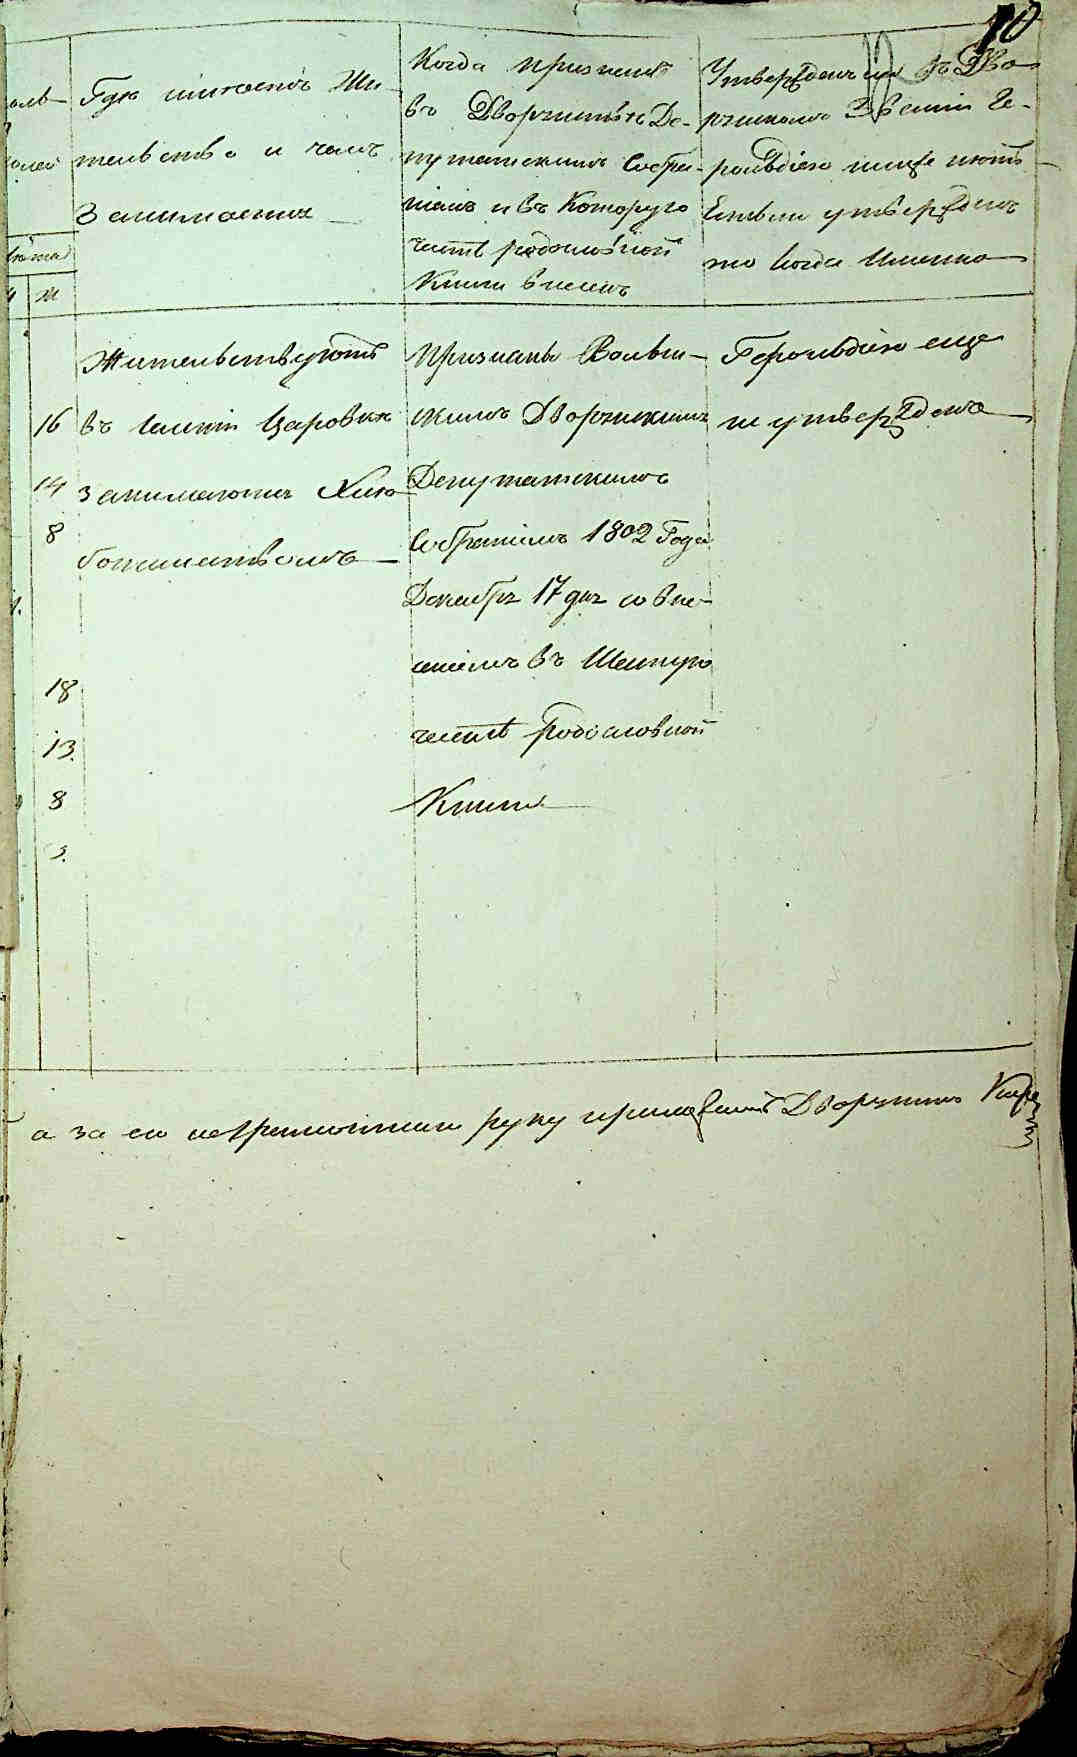 10
Где имеетъ Жи-
тельство и чемъ
Занимается
Когда признанъ
въ Дворянствѣ Де-
путатскимъ Собра-
ніемъ и въ Которую
часть родословной
Книги внесенъ
Утвержденъ ли въ Дво-
рянскомъ Званіи Ге-
рольдіею или нѣтъ
Ежели утвержденъ
то Когда Именно
ж
Жительствуютъ
въ имѣніи Царовки
занимаются Хлѣ-
бопашествомъ
Признаны Волын-
скимъ Дворянскимъ
Депутатскимъ
Собраніемъ 1802 Года
Декабря 17 дня со вне-
сеніемъ въ Шестую
часть Родословной
Книги
Герольдіею еще
не утверждены
16
14
8
18
13.
8
3.
а за его неграмотнаго руку приложилъ Дворянинъ